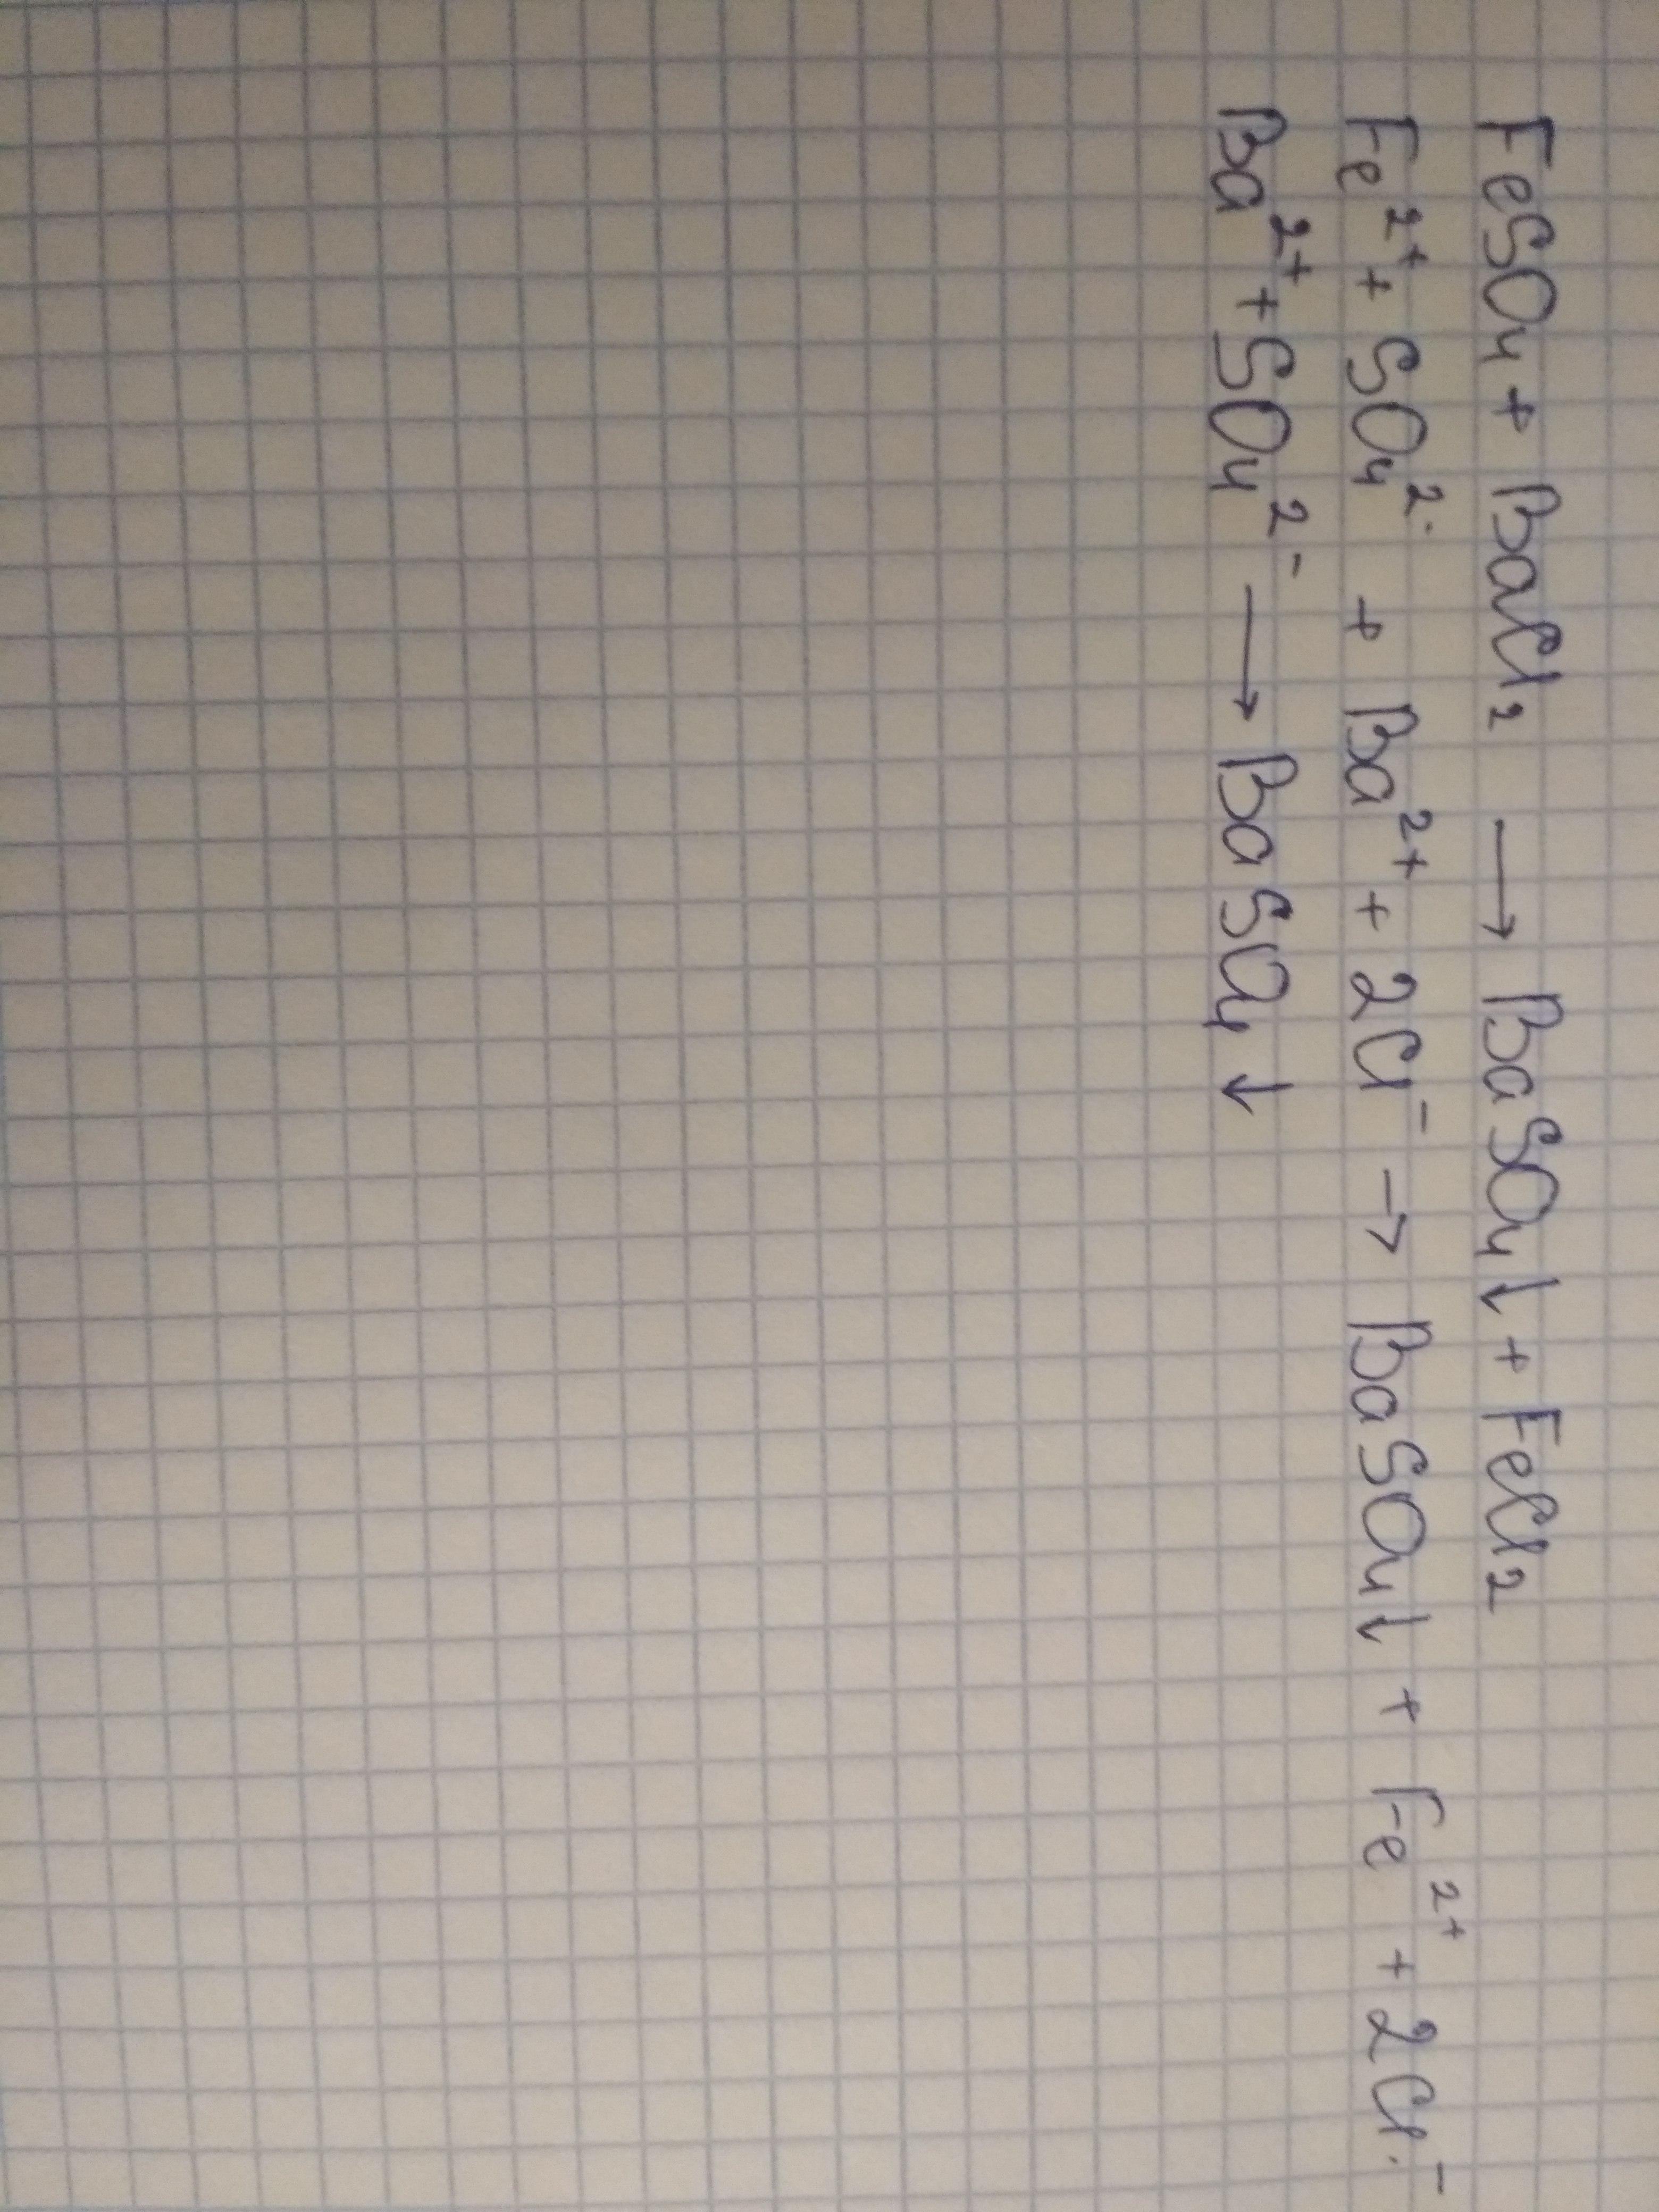 FeSO₄ + BaCl₂ → BaSO₄↓ + FeCl₂
Fe²⁺ + SO₄²⁻ + Ba²⁺ + 2Cl⁻ → BaSO₄↓ + Fe²⁺ + 2Cl⁻
Ba²⁺ + SO₄²⁻ → BaSO₄↓